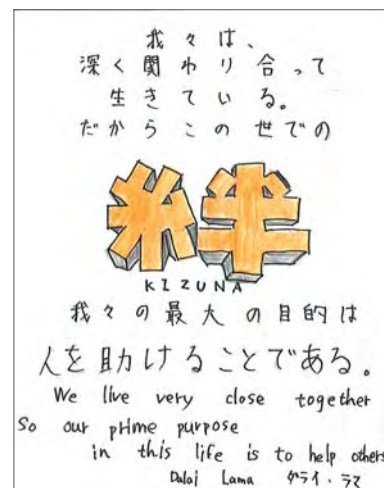 我々は、
深く関わり合って
生きている。
だからこの世での
絆
KIZUNA
我々の最大の目的は
人を助けることである。
We live very close together
So our prime purpose
in this life is to help others
Dalai Lama ダライ・ラマ